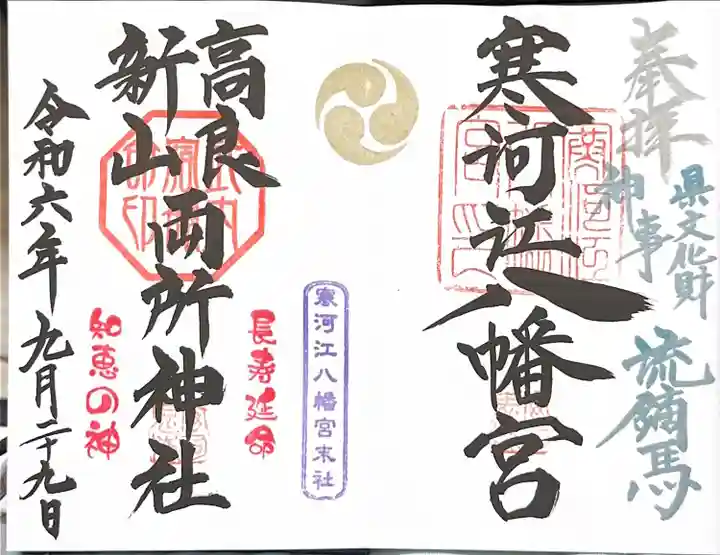 奉拝
県文化財
神事
流鏑馬
寒河江八幡宮
寒河江八幡宮末社
高良
新山
両所神社
長寿延命
知恵の神
令和六年九月二十九日